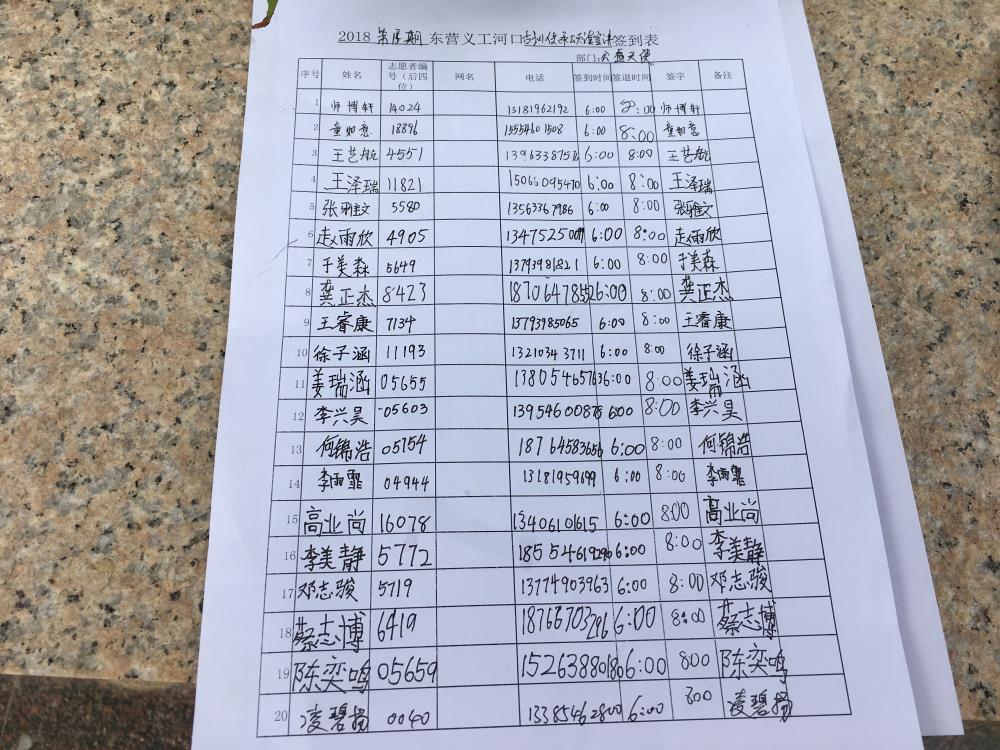 2018 东营义工河口 签到表
部门:
序号 姓名 志愿者编号（后四位） 网名 电话 签到时间 签退时间 签字 备注
1 师博轩 14024 13181962192 6:00 8:00 师博轩
2 童如意 18896 13554601508 6:00 8:00 童如意
3 王艺航 4551 6:00 8:00 王艺航
4 王泽瑞 11821 15065095470 6:00 8:00 王泽瑞
5 张雅文 5580 13563367986 6:00 8:00 张雅文
6 赵雨欣 4905 6:00 8:00 赵雨欣
7 于美森 5649 13793981821 6:00 8:00 于美森
8 龚正杰 8423 18706478552 6:00 8:00 龚正杰
9 王睿康 7134 13793985065 6:00 8:00 王睿康
10 徐子涵 11193 13210343711 6:00 8:00 徐子涵
11 姜瑞涵 05655 13805465763 6:00 8:00 姜瑞涵
12 李兴昊 05603 13954600876 6:00 8:00 李兴昊
13 何锦浩 05754 18764583656 6:00 8:00 何锦浩
14 李雨霏 04944 13181959699 6:00 8:00 李雨霏
15 高业尚 16078 13406101615 6:00 8:00 高业尚
16 李美静 5772 18554619290 6:00 8:00 李美静
17 邓志骏 5719 13774903963 6:00 8:00 邓志骏
18 蔡志博 6419 18766703296 6:00 8:00 蔡志博
19 陈奕鸣 05659 15263880180 6:00 800 陈奕鸣
20 凌碧扬 0040 13385462800 6:00 800 凌碧扬